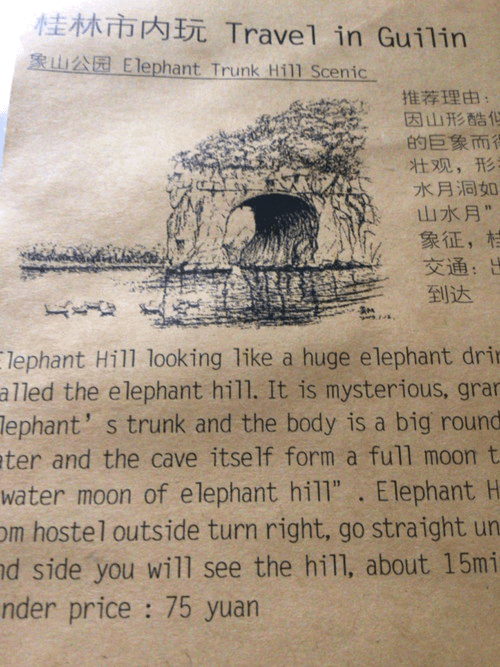 桂林市内玩 Travel in Guilin
象山公园 Elephant Trunk Hill Scenic
推荐理由:
因山形酷似
的巨象而
壮观,形
水月洞如
山水月"
象征,
交通:
到达
Elephant Hill looking like a huge elephant
alled the elephant hill. It is mysterious,
lephant's trunk and the body is a big round
ater and the cave itself form a full moon
water moon of elephant hill". Elephant
om hostel outside turn right, go straight
nd side you will see the hill, about 15mi
nder price : 75 yuan